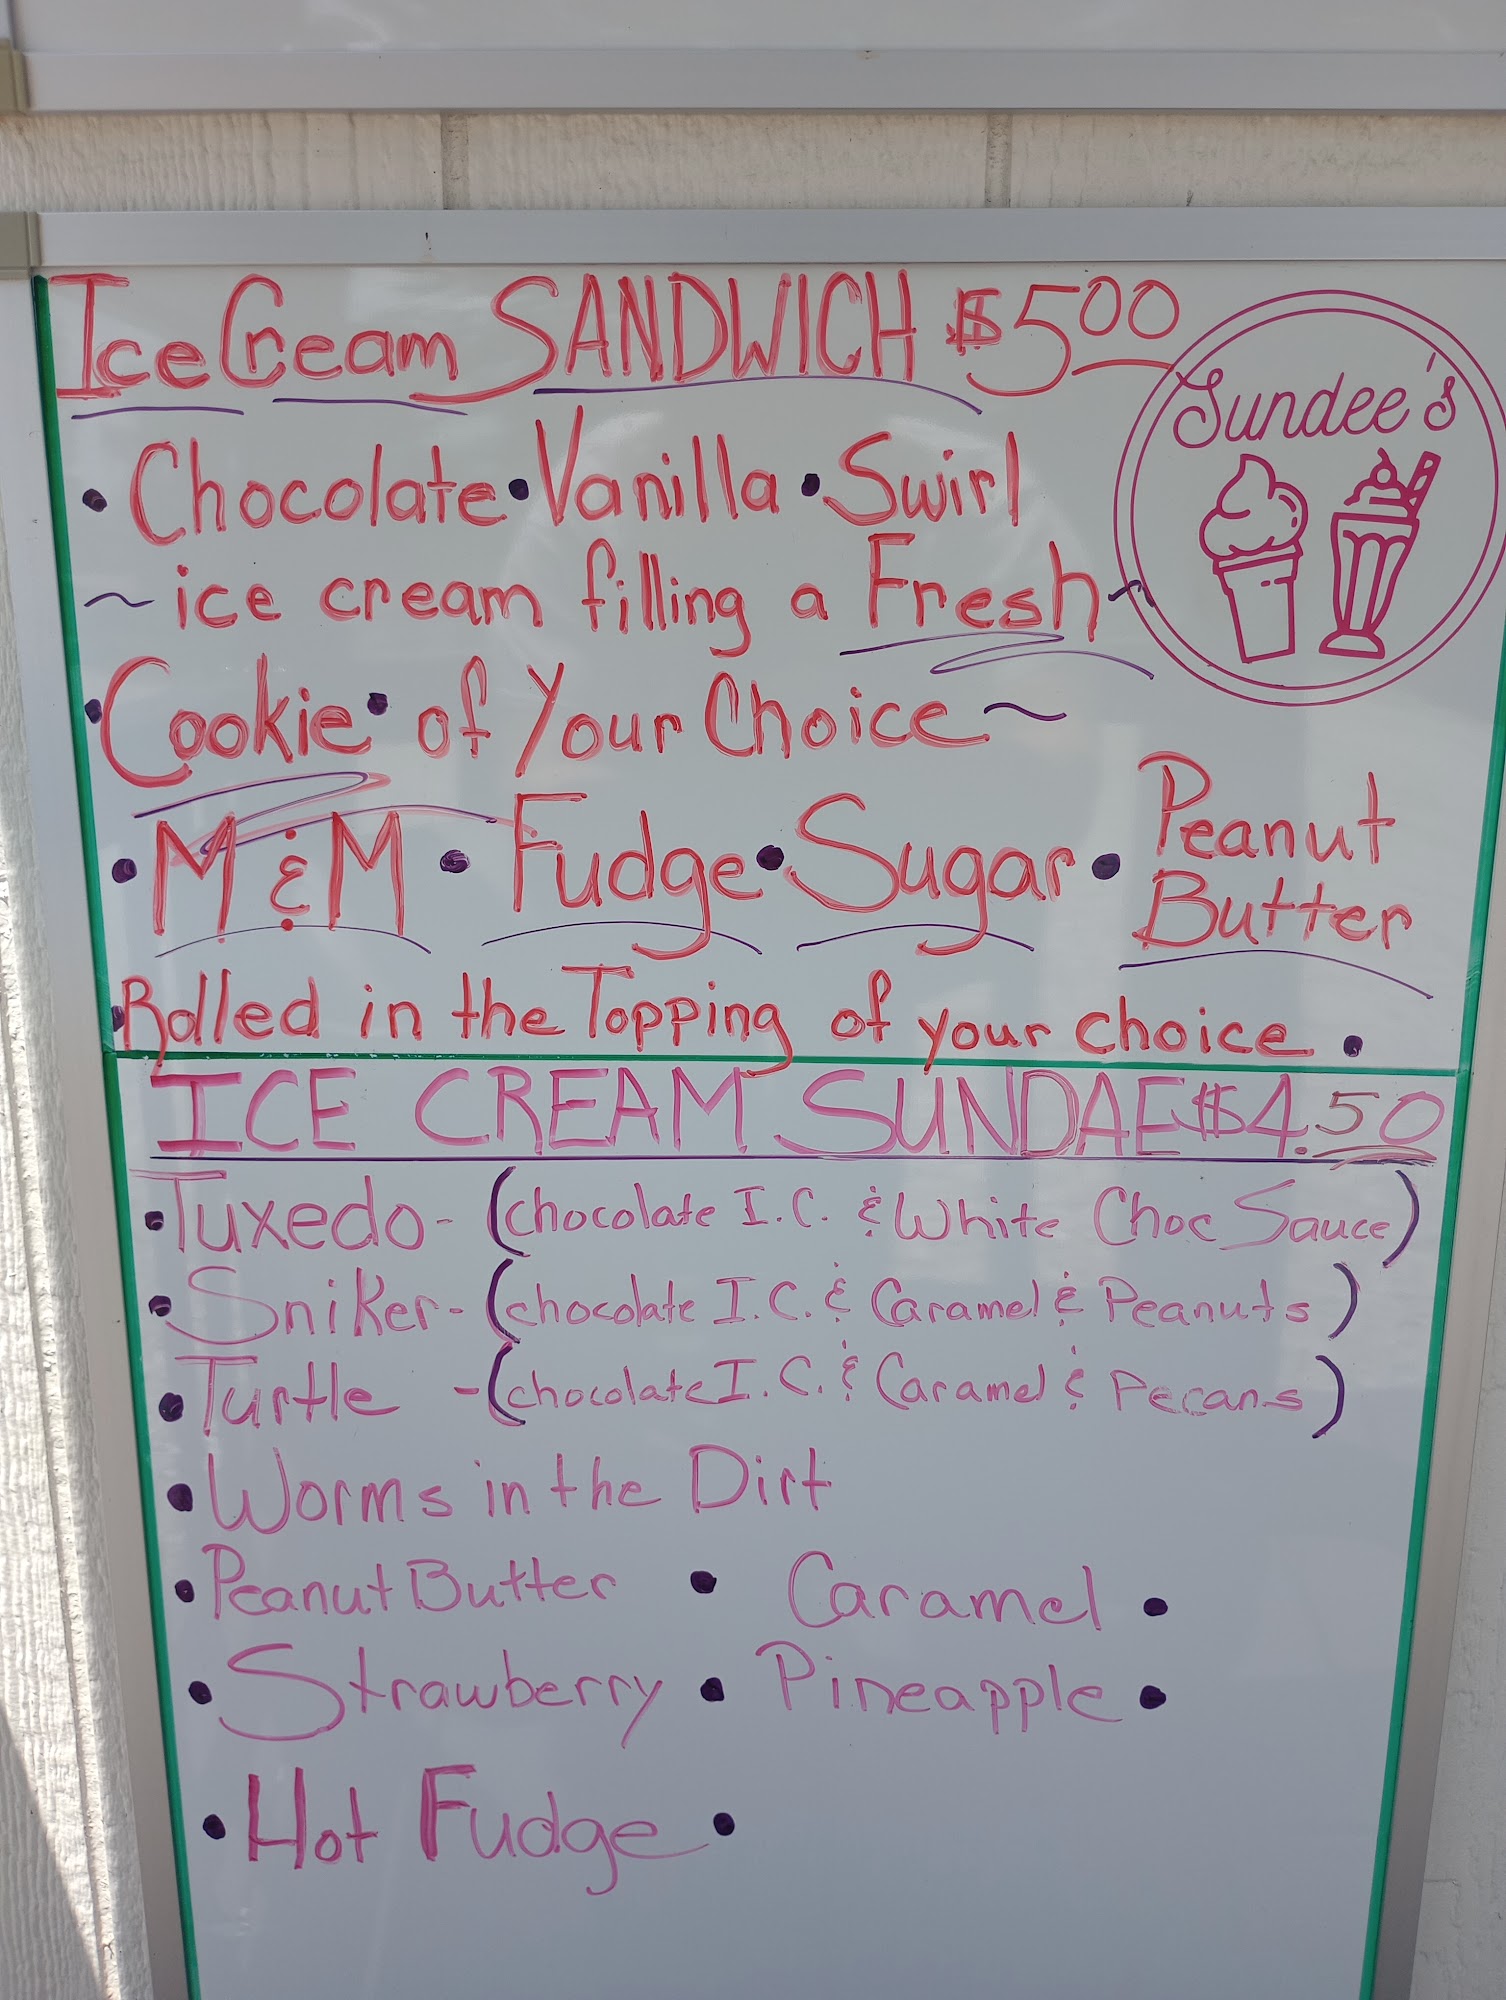 Ice Cream SANDWICH $5.00
Sundee's
• Chocolate • Vanilla • Swirl
~ ice cream filling a Fresh ~
• Cookie • of Your Choice ~
• M & M • Fudge • Sugar • Peanut Butter
• Rolled in the Topping of your choice •
ICE CREAM SUNDAE $4.50
• Tuxedo - (chocolate I.C. & White Choc Sauce)
• Sniker - (chocolate I.C. & Caramel & Peanuts)
• Turtle - (chocolate I.C. & Caramel & Pecans)
• Worms in the Dirt
• Peanut Butter • Caramel •
• Strawberry • Pineapple •
• Hot Fudge •